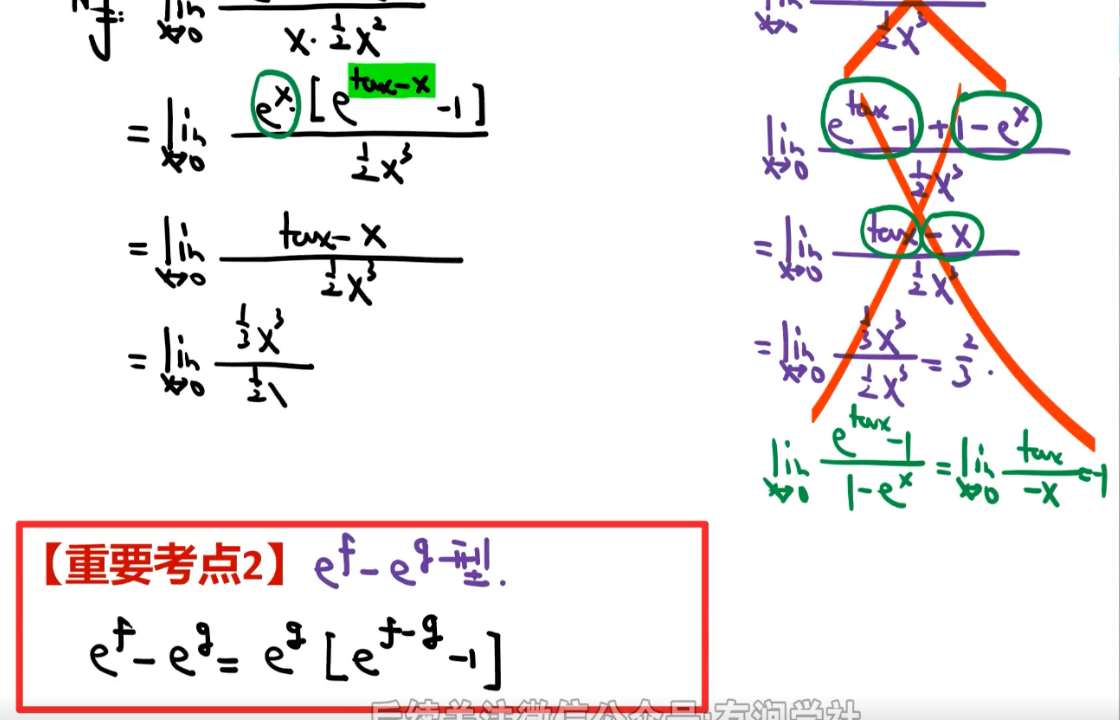 lim x→0 / x·½x²
= lim x→0 eˣ·[e^(tanx-x) -1] / ½x³
= lim x→0 tanx-x / ½x³
= lim x→0 ⅓x³ / ½
½x³
lim x→0 e^(tanx) -1+1-eˣ / ½x³
= lim x→0 tanx-x / ½x³
= lim x→0 ⅓x³ / ½x³ = ⅔.
lim x→0 e^(tanx) -1 / 1-eˣ = lim x→0 tanx / -x = -1
【重要考点2】 e^f - e^g
e^f - e^g = e^g [e^(f-g) -1]
后续关注微信公众号:有洞学社